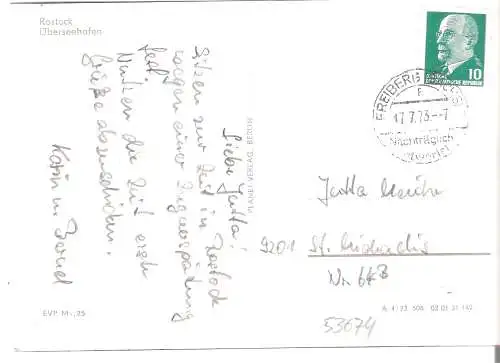 Rostock
Überseehafen
Liebe Jutta!
Sitzen zur Zeit in Rostock
wegen einer Zugverspätung
fest.
Nutzen die Zeit erste
Grüße abzuschicken.
Karin u. Bernd
PLANET-VERLAG, BERLIN
EVP M -,25
10
DEUTSCHE
DEMOKRATISCHE REPUBLIK
FREIBERG
17.7.73.-7
Nachträglich
entwertet
Jutta
9201 St. Michaelis
Nr. 64B
A 4/73 506 02 01 31 142
53674